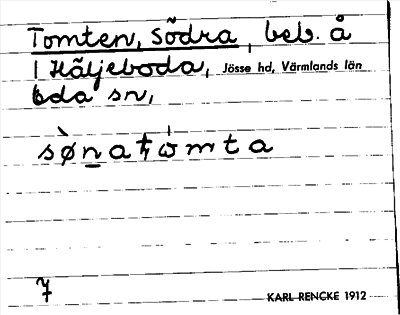 Tomten, Södra, beb. å
1 Häljeboda, Jösse hd, Värmlands län
Eda sn,
sø̀na tómta
7
KARL RENCKE 1912